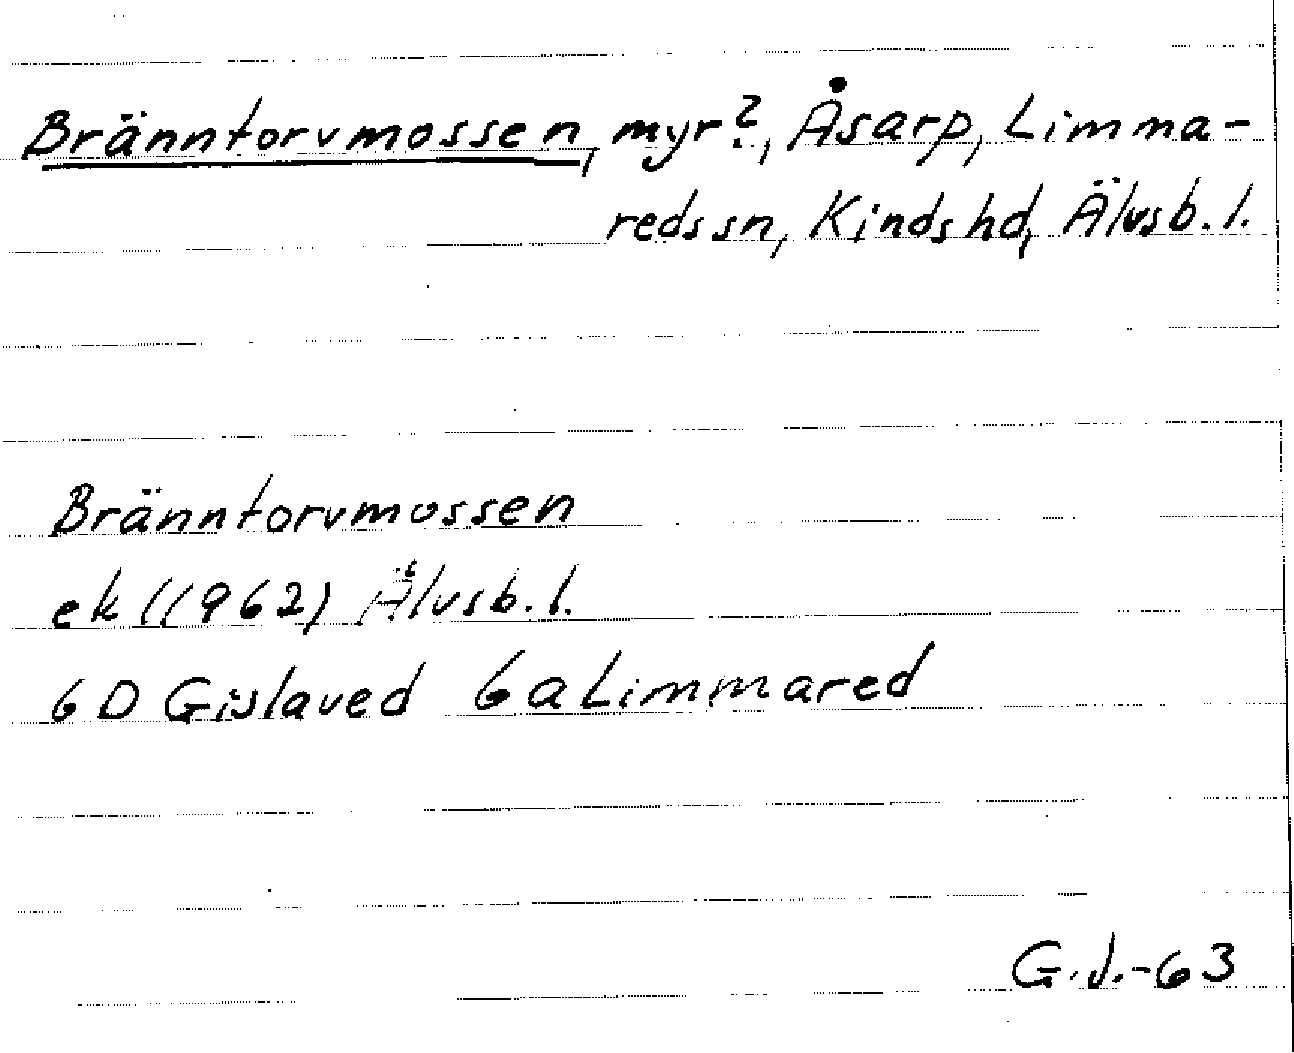 Bränntorvmossen, myr?, Åsarp, Limma-
reds sn, Kinds hd, Älvsb. l.
Bränntorvmossen
ek (1962) Älvsb. l.
6 D Gislaved 6 a Limmared
G. J. -63